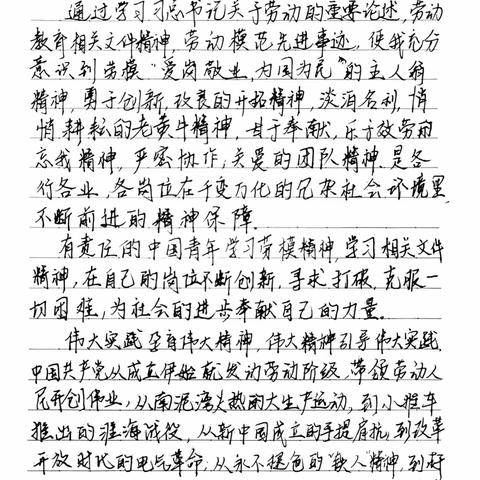 通过学习习总书记关于劳动的重要论述,劳动
教育相关文件精神,劳动模范先进事迹,使我充分
意识到劳模"爱岗敬业,为国为民"的主人翁
精神,勇于创新,改良的开拓精神,淡泊名利,悄
悄耕耘的老黄牛精神,甘于奉献,乐于效劳的
忘我精神,严密协作,关爱的团队精神.是各
行各业,各岗位在千变万化的冗杂社会环境里
不断前进的精神保障.
有责任的中国青年学习劳模精神,学习相关文件
精神,在自己的岗位不断创新,寻求打破,克服一
切困难,为社会的进步奉献自己的力量.
伟大实践孕育伟大精神,伟大精神引导伟大实践.
中国共产党从成立伊始就发动劳动阶级,带领劳动人
民开创伟业,从南泥湾火热的大生产运动,到小推车
推出的淮海战役,从新中国成立的手提肩扛,到改革
开放时代的电气革命,从永不褪色的"铁人"精神,到